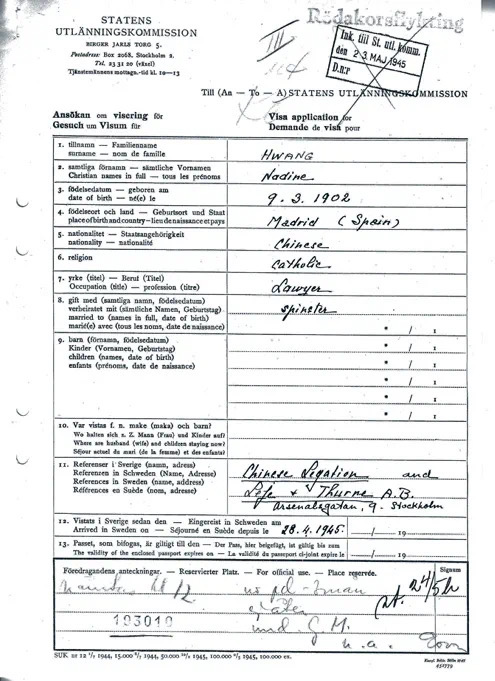 STATENS
UTLÄNNINGSKOMMISSION
BIRGER JARLS TORG 5.
Postadress: Box 2068, Stockholm 2.
Tel. 23 31 20 (växel)
Tjänstemännens mottagn.-tid kl. 10—13
Rödakorsflykting
III
Ink. till St. utl. komm.
den 23. MAJ 1945
D.nr
Till (An — To — A) STATENS UTLÄNNINGSKOMMISSION
Ansökan om visering för
Gesuch um Visum für
Visa application for
Demande de visa pour
1. tillnamn — Familienname
surname — nom de famille
HWANG
2. samtliga förnamn — sämtliche Vornamen
Christian names in full — tous les prénoms
Nadine
3. födelsedatum — geboren am
date of birth — né(e) le
9. 3. 1902
4. födelseort och land — Geburtsort und Staat
place of birth and country — lieu de naissance et pays
Madrid (Spain)
5. nationalitet — Staatsangehörigkeit
nationality — nationalité
Chinese
6. religion
Catholic
7. yrke (titel) — Beruf (Titel)
Occupation (title) — profession (titre)
Lawyer
8. gift med (samtliga namn, födelsedatum)
verheiratet mit (sämtliche Namen, Geburtstag)
married to (names in full, date of birth)
marié(e) avec (tous les noms, date de naissance)
spinster
* / 1
9. barn (förnamn, födelsedatum)
Kinder (Vornamen, Geburtstag)
children (names, date of birth)
enfants (prénoms, date de naissance)
* / 1
* / 1
* / 1
* / 1
* / 1
10. Var vistas f. n. make (maka) och barn?
Wo halten sich z. Z. Mann (Frau) und Kinder auf?
Where are husband (wife) and children staying now?
Séjour actuel du mari (de la femme) et des enfants?
11. Referenser i Sverige (namn, adress)
Referenzen in Schweden (Name, Adresse)
References in Sweden (name, address)
Références en Suède (nom, adresse)
Chinese Legation and
& Thurne A.B.
Arsenalsgatan, 9. Stockholm
12. Vistats i Sverige sedan den — Eingereist in Schweden am
Arrived in Sweden on — Séjourné en Suède depuis le
28. 4. 1945. / 19
13. Passet, som bifogas, är giltigt till den — Der Pass, hier beigefügt, ist gültig bis zum
The validity of the enclosed passport expires on — La validité du passeport ci-joint expire le
/ 19
Föredragandens anteckningar. — Reservierter Platz. — For official use. — Place réservée.
Signum
24/5
193019
n.a.
SUK nr 12